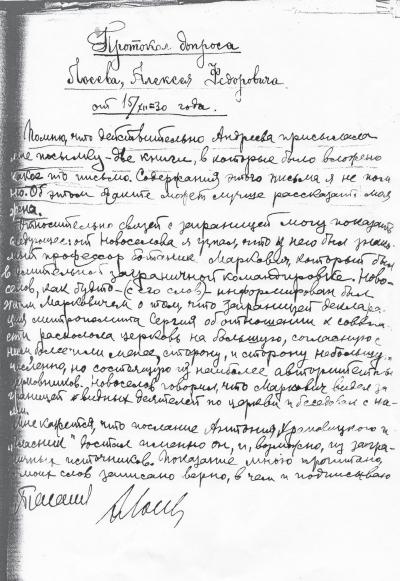 Протокол допроса
Лосева, Алексея Федоровича.
от 15/XII=30 года.
Помню, что действительно Андреева присылала
мне посылку - две книги, в которые было вложено
какое то письмо. Содержания этого письма я не пом
ню. Об этом факте может лучше рассказать моя
жена.
Относительно связей с заграницей могу показать
следующее: от Новоселова я узнал, что у него был знако
мый профессор ботаник Маркович, который был
в длительной заграничной командировке. Ново-
селов, как будто (с его слов) информирован был
этим Марковичем о том, что заграницей деклара
ция митрополита Сергия об отношении к соввла
сти расколола церковь на большую, согласную с
ним более или менее, сторону, и сторону небольшую
численно, но состоящую из наиболее авторитетных
церковников. Новоселов говорил, что Маркович видел за
границей видных деятелей по церкви и беседовал с ни-
ми.
Мне кажется, что послание Антония Храповицкого и
достал именно он, и, возможно, из загра-
ничных источников. Показание мною прочитано,
с моих слов записано верно, в чем и подписываюсь
А Лосев